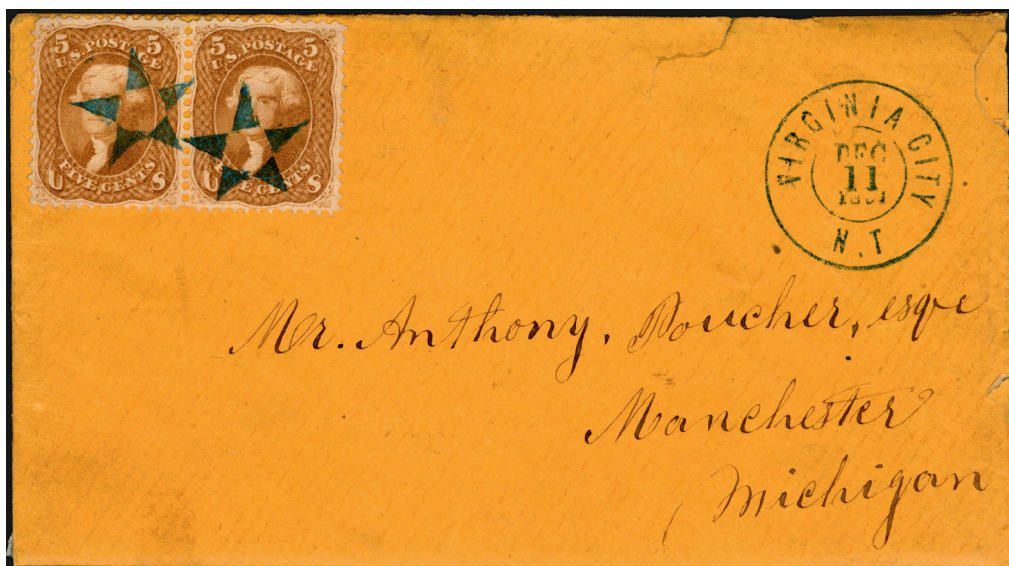 5 U.S. POSTAGE 5
FIVE CENTS
U S
5 U.S. POSTAGE 5
FIVE CENTS
U S
VIRGINIA CITY
DEC
11
N.T
Mr. Anthony. Poucher, esqr
Manchester
Michigan